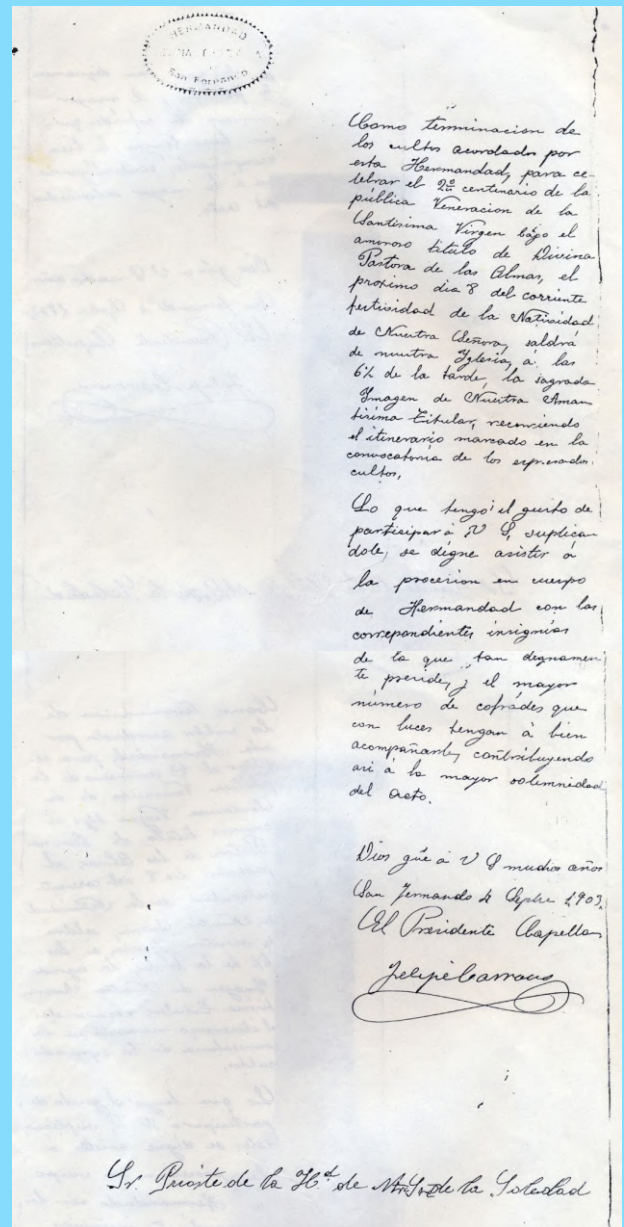 HERMANDAD
San Fernando
Como terminacion de
los cultos acordados por
esta Hermandad, para ce-
lebrar el 2º centenario de la
pública Veneracion de la
Santisima Virgen bajo el
amoroso titulo de Divina
Pastora de las Almas, el
proximo dia 8 del corriente
festividad de la Natividad
de Nuestra Señora, saldrá
de nuestra Yglesia, á las
6½ de la tarde, la sagrada
Imagen de Nuestra Aman
tisima Titular, recorriendo
el itinerario marcado en la
convocatoria de los expresados
cultos,
Lo que tengo el gusto de
participar á V S, suplican
dole, se digne asistir á
la procesion en cuerpo
de Hermandad con las
correpondientes insignias
de la que tan dignamen
te preside, y el mayor
número de cofrades que
con luces tengan á bien
acompañarle, contribuyendo
asi á la mayor solemnidad
del acto.
Dios gũe á V S muchos años
San Fernando 4 Sepbre 1903.
El Presidente Capellan
Felipe
Sr. Prioste de la Hd de Ntr Sra de la Soledad